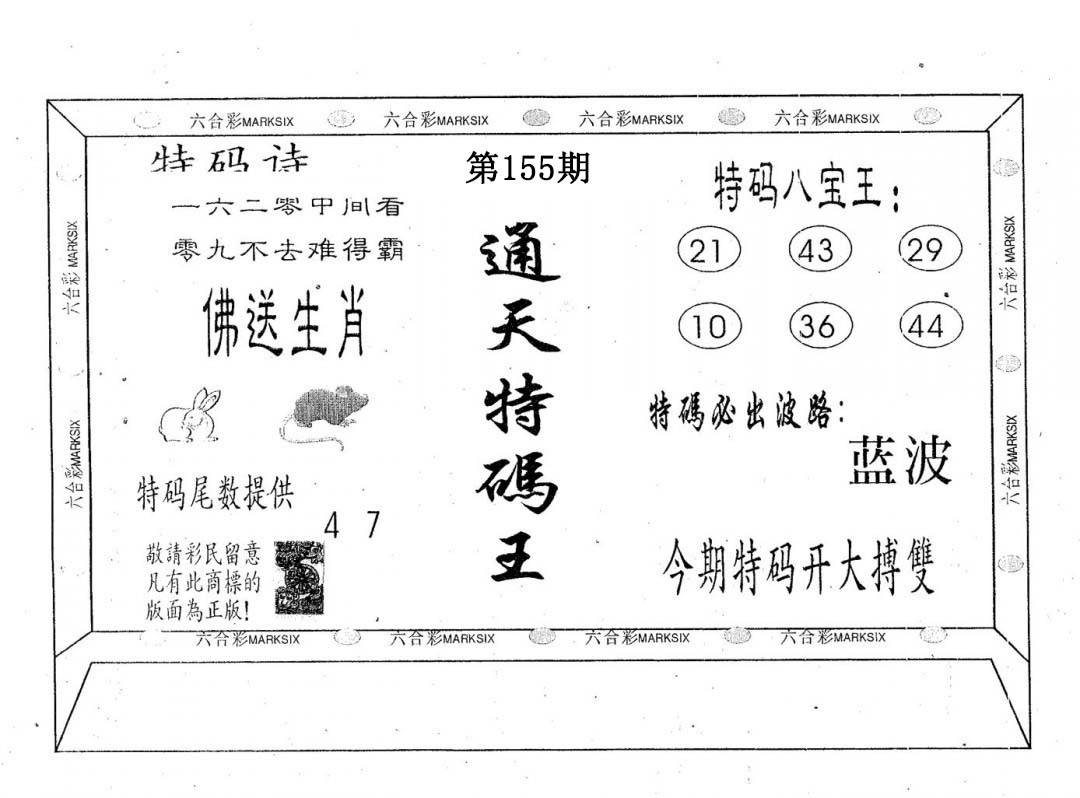 六合彩MARKSIX 六合彩MARKSIX 六合彩MARKSIX 六合彩MARKSIX
特码诗
一六二零中间看
零九不去难得霸
佛送生肖
特码尾数提供
4 7
敬請彩民留意
凡有此商標的
版面為正版!
第155期
通天特碼王
特码八宝王:
21 43 29
10 36 44
特碼必出波路:
蓝波
今期特码开大搏雙
六合彩MARKSIX
六合彩MARKSIX
六合彩MARKSIX
六合彩MARKSIX
六合彩MARKSIX 六合彩MARKSIX 六合彩MARKSIX 六合彩MARKSIX